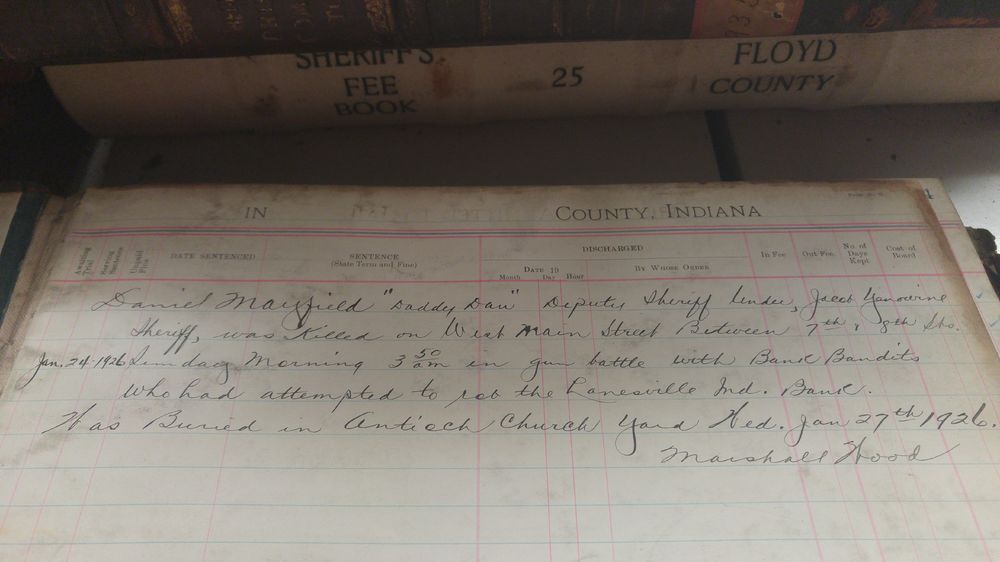 SHERIFF'S FEE BOOK
25
FLOYD COUNTY
IN COUNTY, INDIANA
Awaiting Trial
Serving Sentence
Unpaid Fine
DATE SENTENCED
SENTENCE
(State Term and Fine)
DISCHARGED
DATE 19
Month Day Hour
BY WHOSE ORDER
In Fee
Out-Fee
No. of Days Kept
Cost of Board
Daniel Mayfield "Daddy Dan" Deputy Sheriff Under, Jacob
Sheriff, was Killed on West Main Street Between 7th & 8th Sts.
Jan. 24-1926 Sunday Morning 3 50 am in gun battle with Bank Bandits
who had attempted to rob the Lanesville Ind. Bank.
Was Buried in Antioch Church Yard Wed. Jan 27th 1926.
Marshall Wood